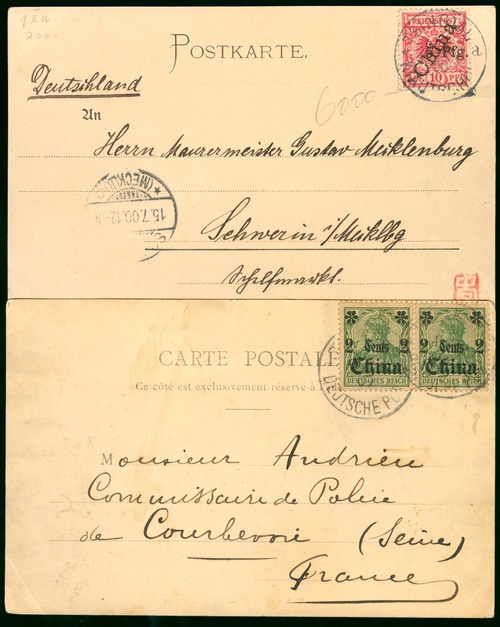 1 II a
200.-
POSTKARTE.
REICHSPOST
China
5 Pfg.
10 PF
a
Deutschland
An
6000
Herrn Maurermeister Gustav Mecklenburg
(MECKLB)
15.7.00.12-
Schwerin i/Mecklbg
Schelfmarkt.
2 Cents 2
China
DEUTSCHES REICH
2 Cents 2
China
DEUTSCHES REICH
DEUTSCHE PO
CARTE POSTALE
Ce côté est exclusivement réservé à l
Monsieur Andrieu
Commissaire de Police
de Courbevoie (Seine)
France